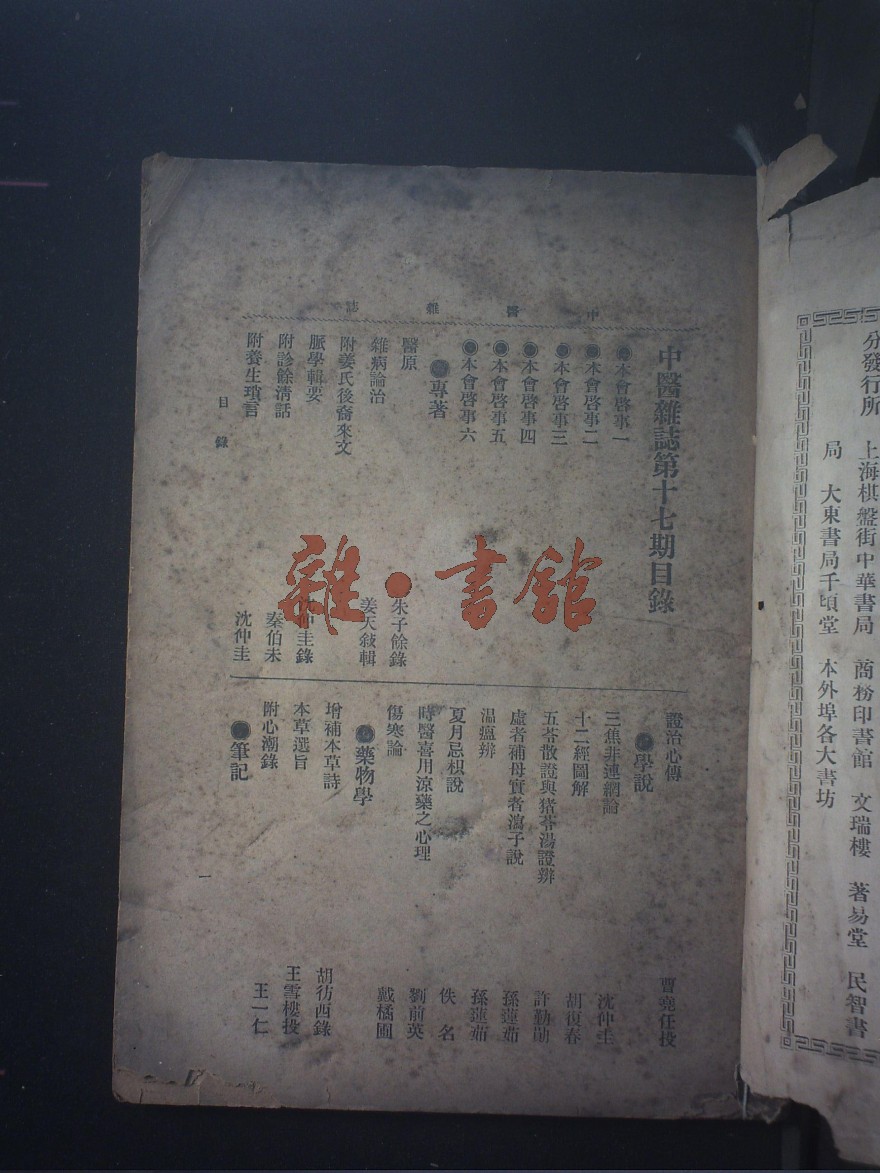 分發行所 上海棋盤街中華書局 商務印書館 文瑞樓 著易堂 民智書
局 大東書局千頃堂 本外埠各大書坊
中醫雜誌
中醫雜誌第十七期目錄
本會啓事一
本會啓事二
本會啓事三
本會啓事四
本會啓事五
本會啓事六
專著
醫原 朱子餘錄
雜病論治 姜天敍輯
附姜氏後裔來文
脈學輯要 沈仲圭錄
附診餘清話 秦伯未
附養生瑣言 沈仲圭
證治心傳 曹堯任投
學說
三焦非連網論 沈仲圭
十二經圖解 胡復春
五苓散證與猪苓湯證辨 許勤勛
虛者補母實者瀉子說 孫蓮茹
温瘟辨 孫蓮茹
夏月忌枳說 佚名
時醫喜用涼藥之心理 劉前英
傷寒論 戴橘圃
藥物學
增補本草詩 胡彷西錄
本草選旨 王雪樓投
附心潮錄 王一仁
筆記
目錄
一
雜·書館